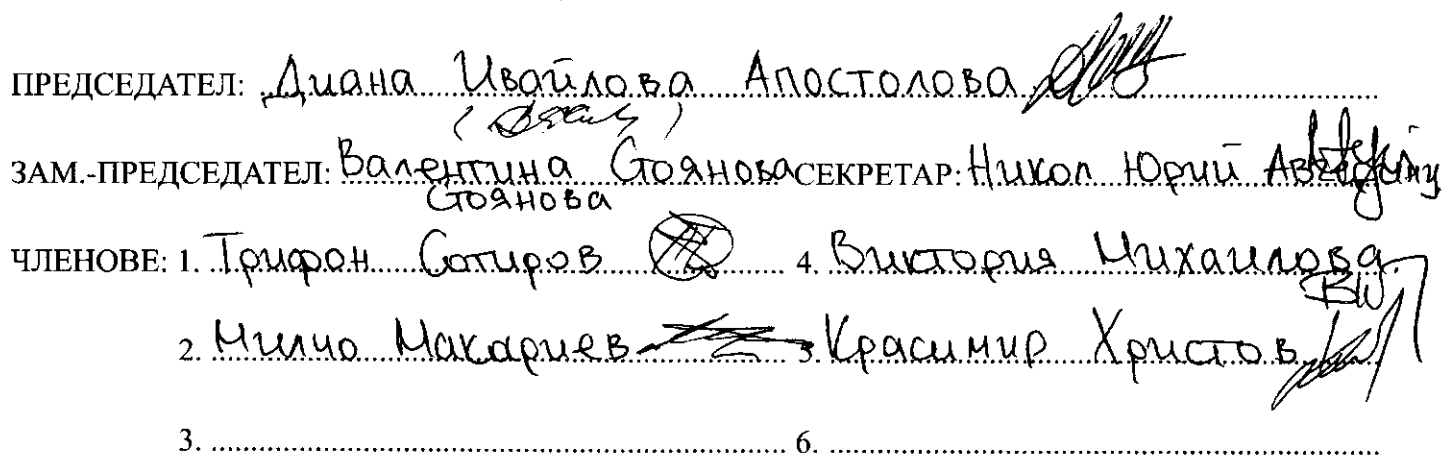 ПРЕДСЕДАТЕЛ: Диана Ивайлова Апостолова
ЗАМ.-ПРЕДСЕДАТЕЛ: Валентина Стоянова СЕКРЕТАР: Никол Юрий
Стоянова
ЧЛЕНОВЕ: 1. Трифон Сотиров 4. Виктория Михаилова
2. Милчо Макариев 5. Красимир Христов
3. 6.